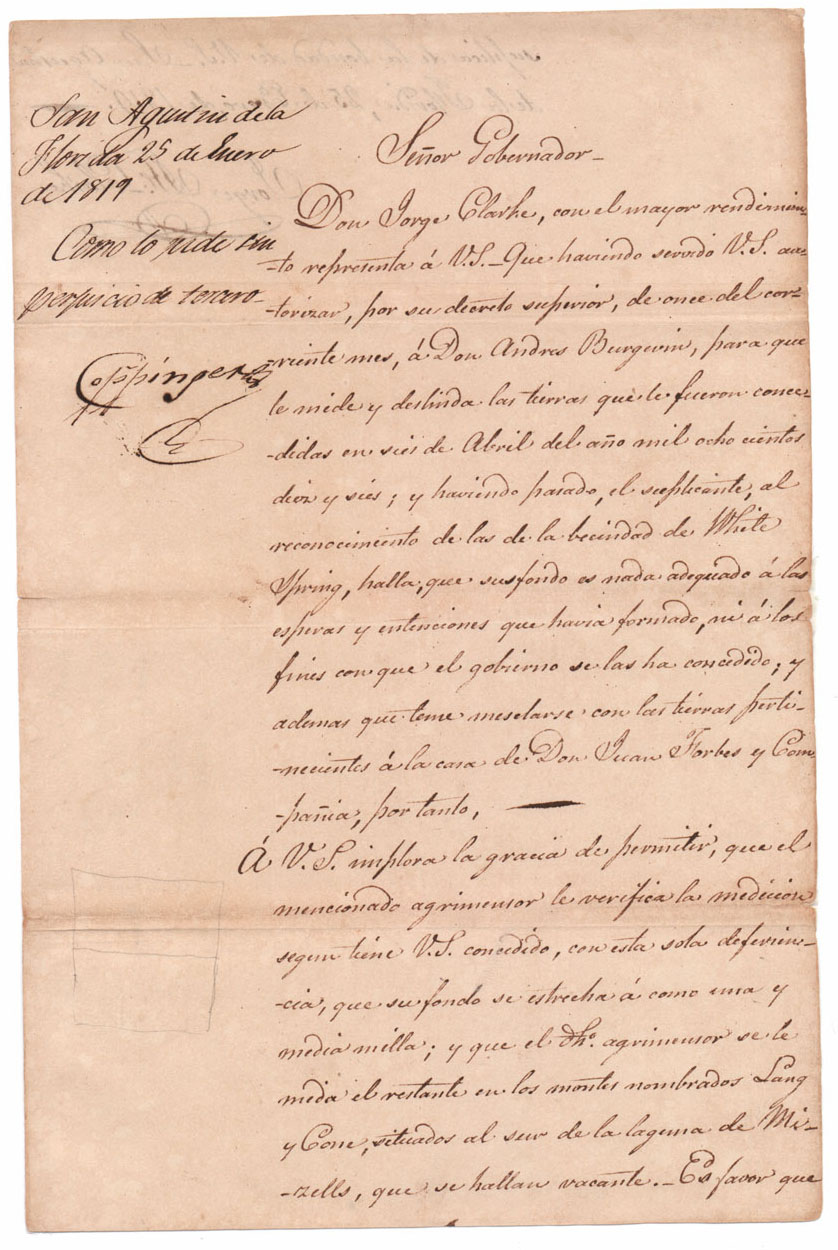 San Agustin de la
Florida 25 de Enero
de 1819
Como lo pide sin
perjuicio de tercero
Coppinger
Señor Gobernador
Don Jorge Clarke, con el mayor rendimien-
-to representa á V.S. - Que haviendo servido V.S. au-
-torizar, por su decreto superior, de once del cor-
-riente mes, á Don Andres Burgevin, para que
le mide y deslinda las tierras que le fueron conce-
-didas en sies de Abril del año mil ocho cientos
diez y sies; y haviendo pasado, el suplicante, al
reconocimiento de las de la becindad de White
Spring, halla, que su fondo es nada adequado á las
esperas y entenciones que havia formado, ni á los
fines con que el gobierno se las ha concedido; y
ademas que teme meselarse con las tierras perti-
-necientes á la casa de Don Juan Forbes y Com-
-pañia, por tanto,
Á V.S. implora la gracia de permitir, que el
mencionado agrimensor le verifica la medicion
segun tiene V.S. concedido, con esta sola deferien-
-cia, que su fondo se estrecha á como una y
media milla; y que el dho. agrimensor se le
meda el restante en los montes nombrados Lang
y Cone, situados al sur de la laguna de Mi-
-zells, que se hallan vacante. - Es favor que